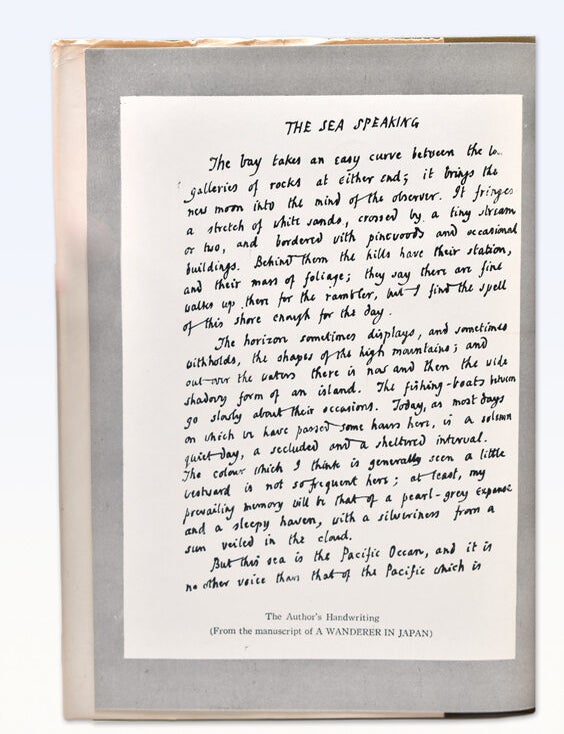 THE SEA SPEAKING
The bay takes an easy curve between the
galleries of rocks at either end; it brings the
new moon into the mind of the observer. It fringes
a stretch of white sands, crossed by a tiny stream
or two, and bordered with pinewoods and occasional
buildings. Behind them the hills have their station,
and their mass of foliage; they say there are fine
walks up there for the rambler, but I find the spell
of this shore enough for the day.
The horizon sometimes displays, and sometimes
withholds, the shapes of the high mountains; and
out over the waters there is now and then the wide
shadowy form of an island. The fishing-boats between
go slowly about their occasions. Today, as most days
on which we have passed some hours here, is a solemn
quiet day, a secluded and a sheltered interval.
The colour which I think is generally seen a little
westward is not so frequent here; at least, my
prevailing memory will be that of a pearl-grey expanse
and a sleepy haven, with a silveriness from a
sun veiled in the cloud.
But this sea is the Pacific Ocean, and it is
no other voice than that of the Pacific which is
The Author's Handwriting
(From the manuscript of A WANDERER IN JAPAN)